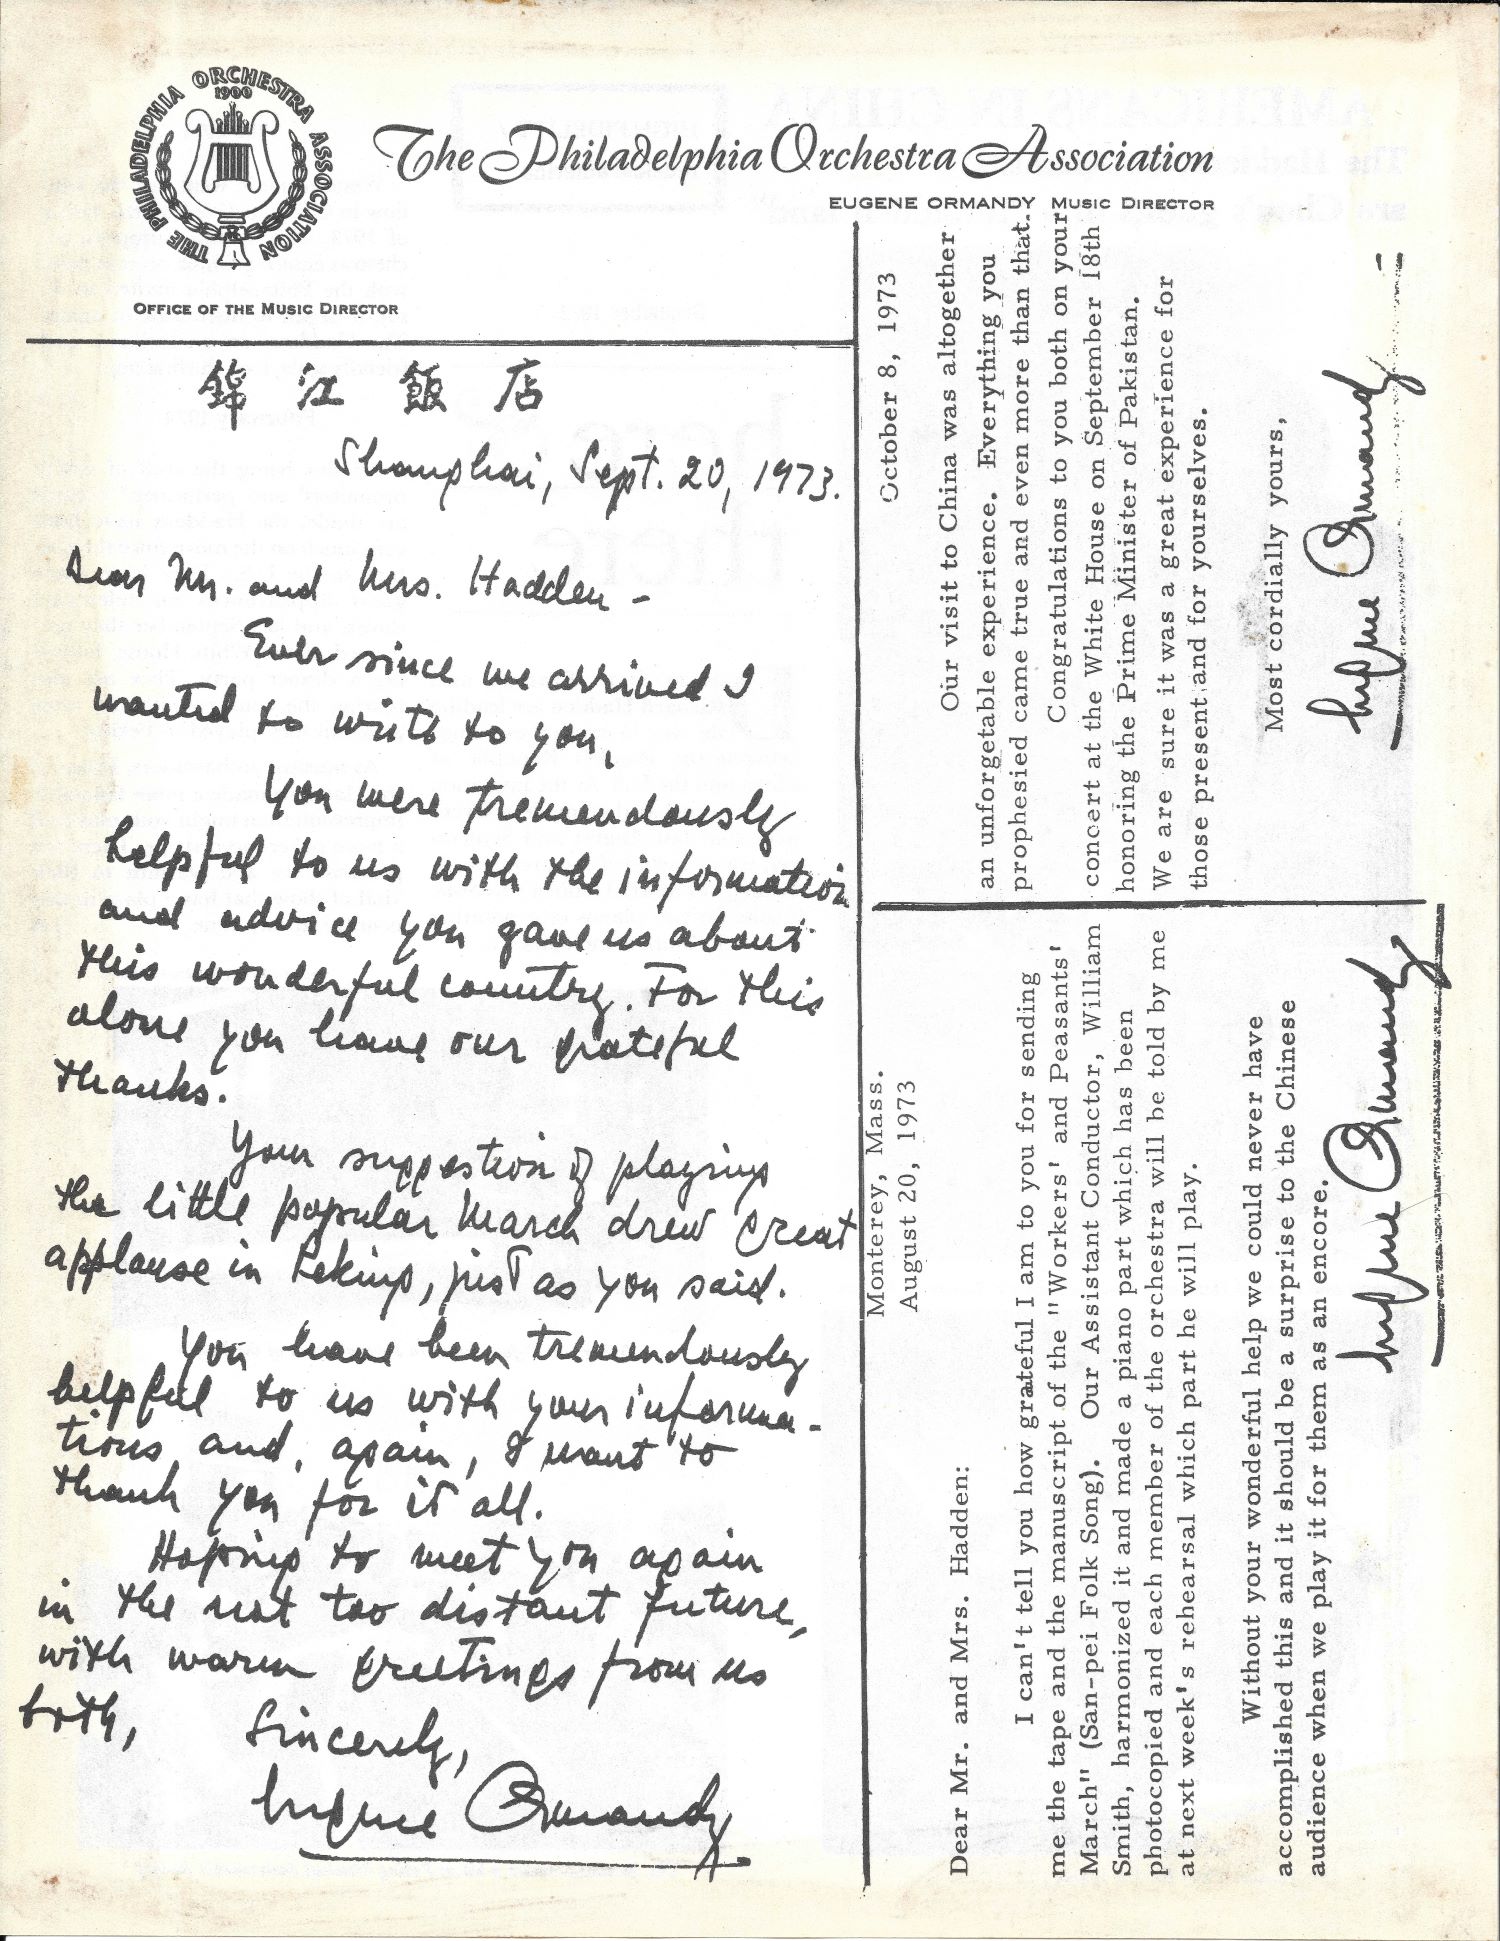 THE PHILADELPHIA ORCHESTRA ASSOCIATION
1900
The Philadelphia Orchestra Association
EUGENE ORMANDY MUSIC DIRECTOR
OFFICE OF THE MUSIC DIRECTOR
錦江飯店
Shanghai, Sept. 20, 1973.
Dear Mr. and Mrs. Hadden -
Ever since we arrived I
wanted to write to you,
You were tremendously
helpful to us with the information
and advice you gave us about
this wonderful country. For this
alone you have our grateful
thanks.
Your suggestion of playing
the little popular March drew great
applause in Peking, just as you said.
You have been tremendously
helpful to us with your informa-
tions and, again, I want to
thank you for it all.
Hoping to meet you again
in the not too distant future,
with warm greetings from us
both,
Sincerely,
Eugene Ormandy
Monterey, Mass.
August 20, 1973
Dear Mr. and Mrs. Hadden:
I can't tell you how grateful I am to you for sending
me the tape and the manuscript of the "Workers' and Peasants'
March" (San-pei Folk Song). Our Assistant Conductor, William
Smith, harmonized it and made a piano part which has been
photocopied and each member of the orchestra will be told by me
at next week's rehearsal which part he will play.
Without your wonderful help we could never have
accomplished this and it should be a surprise to the Chinese
audience when we play it for them as an encore.
Eugene Ormandy
October 8, 1973
Our visit to China was altogether
an unforgetable experience. Everything you
prophesied came true and even more than that.
Congratulations to you both on your
concert at the White House on September 18th
honoring the Prime Minister of Pakistan.
We are sure it was a great experience for
those present and for yourselves.
Most cordially yours,
Eugene Ormandy